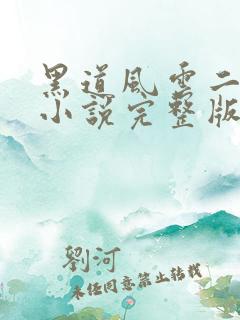 黑道風雲二
小說完整版
劉河
未经同意禁止转载